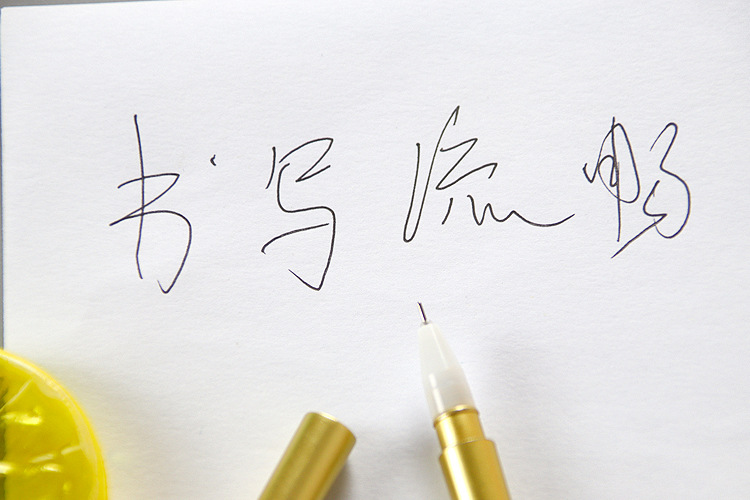 书写流畅